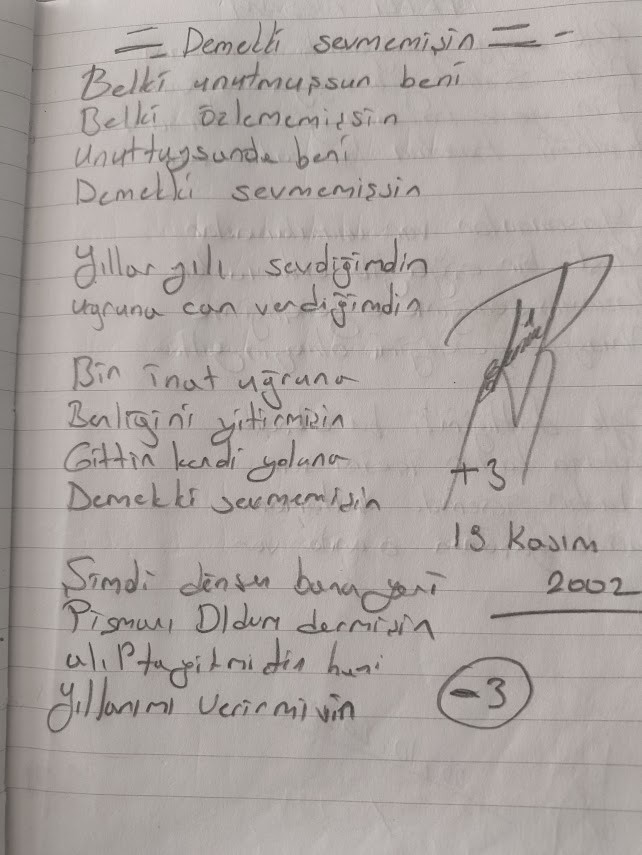 Demekki sevmemişin
Belki unutmuşsun beni
Belki özlememişsin
Unuttuysunda beni
Demekki sevmemişsin
Yıllar yılı sevdiğimdin
uğruna can verdiğimdin
Bin inat uğruna
Benliğini yitirmişin
Gittin kendi yoluna
Demekki sevmemişin
+3
13 Kasım
2002
Şimdi dönsen bana geri
Pişman Oldum dermisin
alıp
Yıllarımı verirmisin
-3